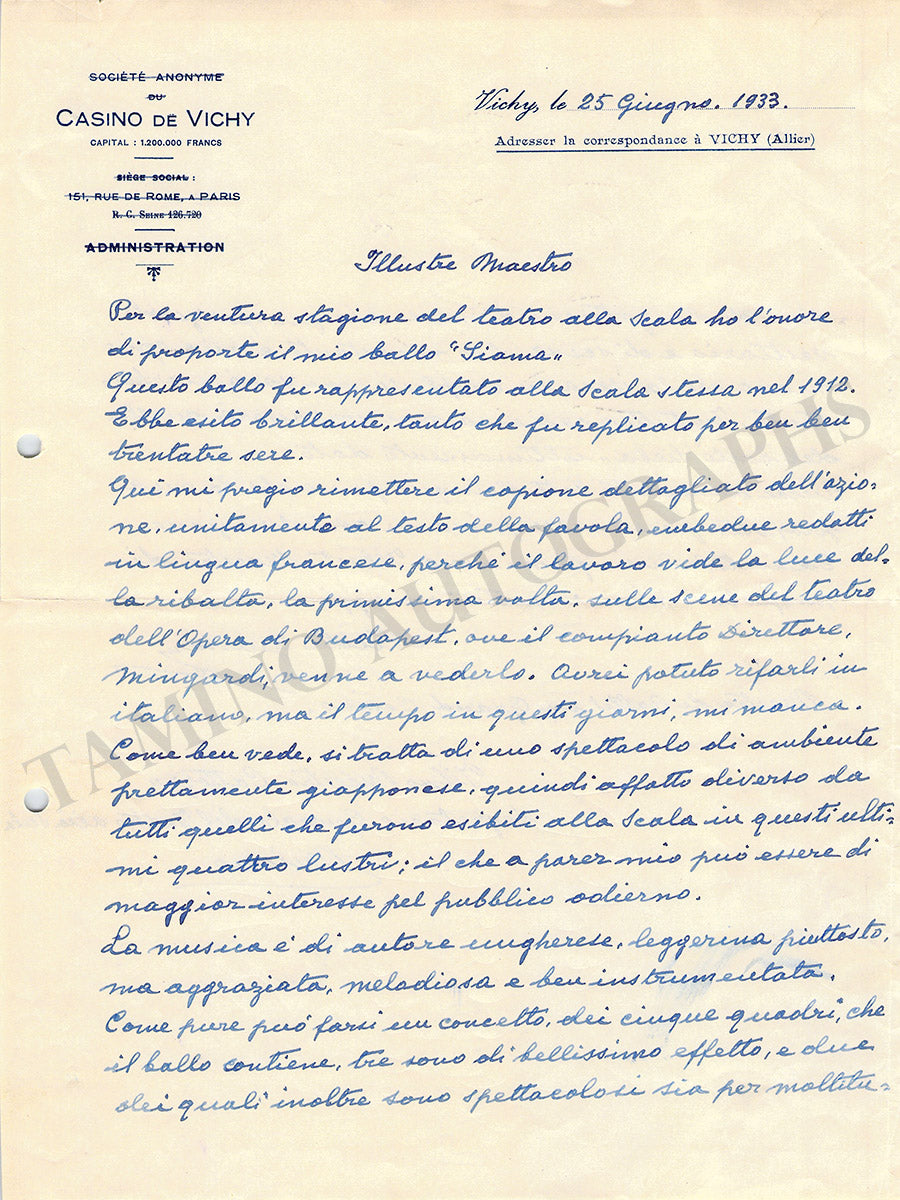 SOCIÉTÉ ANONYME
DU
CASINO DE VICHY
CAPITAL : 1.200.000 FRANCS
SIÈGE SOCIAL :
151, RUE DE ROME, A PARIS
R. C. SEINE 126.720
ADMINISTRATION
Vichy, le 25 Giugno. 1933.
Adresser la correspondance à VICHY (Allier)
Illustre Maestro
Per la ventura stagione del teatro alla Scala ho l'onore
di proporte il mio ballo "Siama"
Questo ballo fu rappresentato alla Scala stessa nel 1912.
Ebbe esito brillante, tanto che fu replicato per ben ben
trentatre sere.
Qui mi pregio rimettere il copione dettagliato dell'azio-
ne, unitamente al testo della favola, embedue redatti
in lingua francese, perché il lavoro vide la luce del-
la ribalta, la primissima volta, sulle scene del teatro
dell'Opera di Budapest, ove il compianto Direttore,
Mingardi, venne a vederlo. Avrei potuto rifarli in
italiano, ma il tempo in questi giorni, mi manca.
Come ben vede, si tratta di uno spettacolo di ambiente
prettamente giapponese, quindi affatto diverso da
tutti quelli che furono esibiti alla Scala in questi ulti-
mi quattro lustri; il che a parer mio può essere di
maggior interesse pel pubblico odierno.
La musica é di autore ungherese, leggerina piuttosto,
ma aggraziata, melodiosa e ben instrumentata.
Come pure può farsi un concetto, dei cinque quadri, che
il ballo contiene, tre sono di bellissimo effetto, e due
dei quali inoltre sono spettacolosi sia per moltitu-
TAMINO AUTOGRAPHS